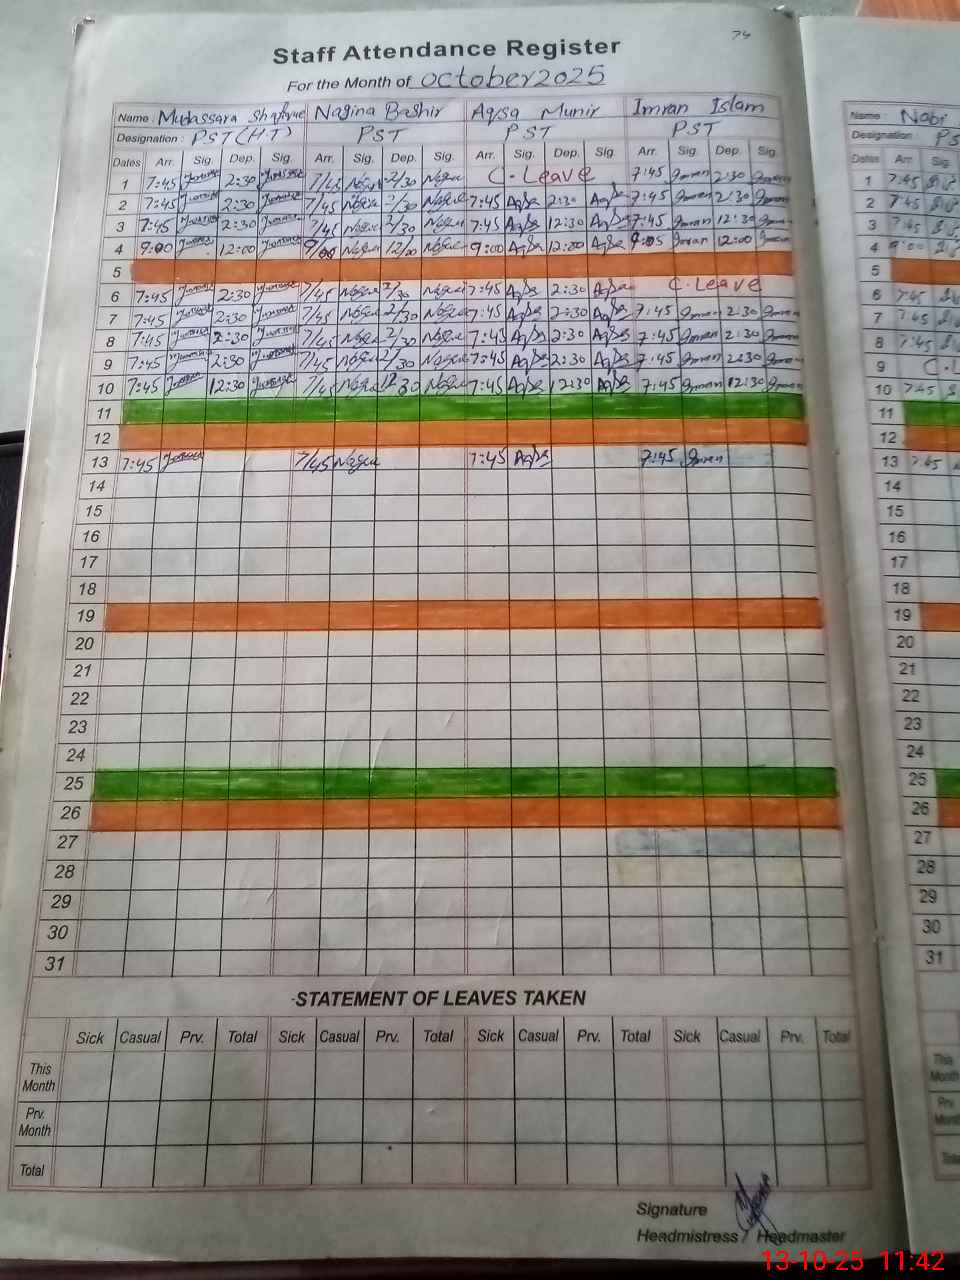 74
Staff Attendance Register
For the Month of October 2025
Name: Mudassara Nagina Bashir Aqsa Munir Imran Islam
Designation: PST (H.T) PST PST PST
Dates Arr. Sig. Dep. Sig. Arr. Sig. Dep. Sig. Arr. Sig. Dep. Sig. Arr. Sig. Dep. Sig.
1 7:45 2:30 7/45 2/30 C-Leave 7:45 Imran 2:30 Imran
2 7:45 2:30 7/45 2/30 7:45 Aqsa 2:30 Aqsa 7:45 Imran 2:30 Imran
3 7:45 2:30 7/45 2/30 7:45 Aqsa 12:30 Aqsa 7:45 Imran 12:30 Imran
4 9:00 12:00 9/00 12/00 9:00 Aqsa 12:00 Aqsa 9:05 Imran 12:00 Imran
5
6 7:45 2:30 7/45 2/30 7:45 Aqsa 2:30 Aqsa C-Leave
7 7:45 2:30 7/45 2/30 7:45 Aqsa 2:30 Aqsa 7:45 Imran 2:30 Imran
8 7:45 2:30 7/45 2/30 7:45 Aqsa 2:30 Aqsa 7:45 Imran 2:30 Imran
9 7:45 2:30 7/45 2/30 7:45 Aqsa 2:30 Aqsa 7:45 Imran 2:30 Imran
10 7:45 12:30 7/45 12/30 7:45 Aqsa 12:30 Aqsa 7:45 Imran 12:30 Imran
11
12
13 7:45 7/45 7:45 Aqsa 7:45 Imran
14
15
16
17
18
19
20
21
22
23
24
25
26
27
28
29
30
31
STATEMENT OF LEAVES TAKEN
Sick Casual Prv. Total Sick Casual Prv. Total Sick Casual Prv. Total Sick Casual Prv. Total
This Month
Prv. Month
Total
Signature
Headmistress / Headmaster
Name: Nabi
Designation: PS
Dates Arr. Sig.
1 7:45
2 7:45
3 7:45
4 9:00
5
6 7:45
7 7:45
8 7:45
9 C-L
10 7:45
11
12
13 7:45
14
15
16
17
18
19
20
21
22
23
24
25
26
27
28
29
30
31
This Month
Prv. Month
Total
13-10-25 11:42